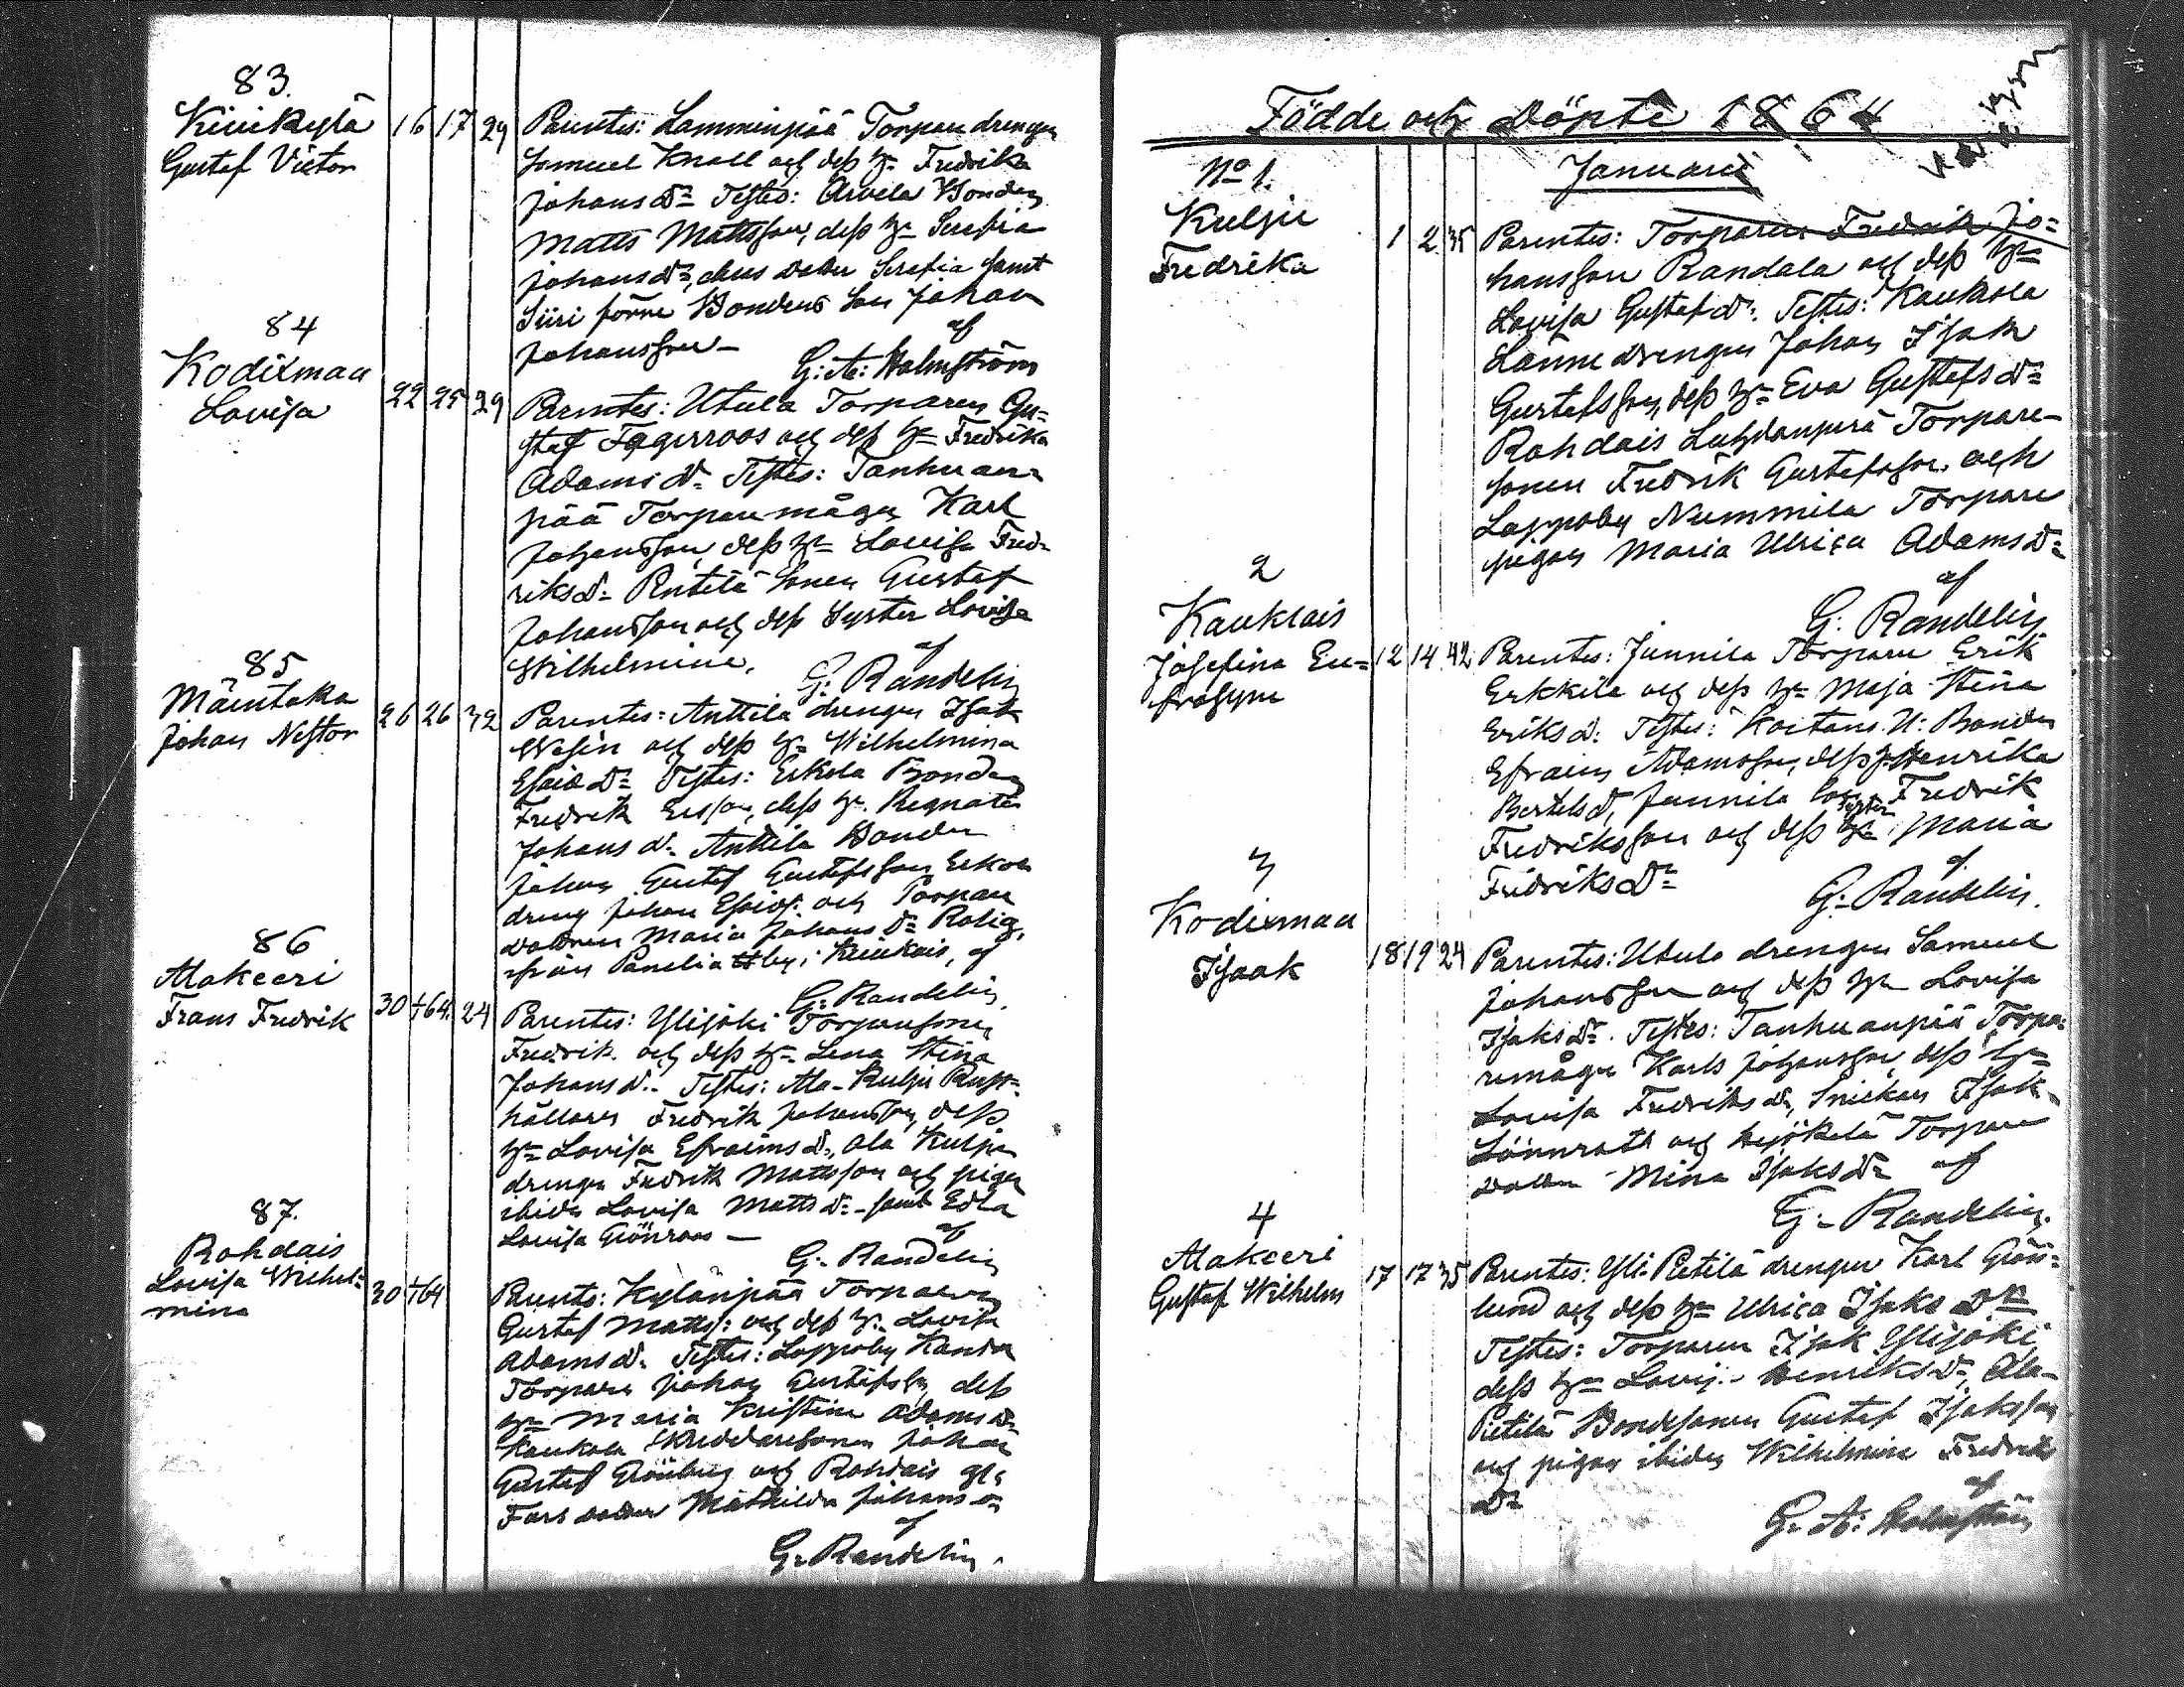 83.
Kiukylä
Gustaf Victor
16 17 29
Parentes: Lamminpää Torpare drengen
Samuel Knall och deß h:u Fredrika
Johans Dr Testes: Arvela Bonden
Matts Mattsson, deß h:u Serafia
Johans Dr, deras dotter Serafia samt
Siiri förre Bondens Son Johan
Johansson — af
G: A: Holmström
84
Kodixmaa
Lovisa
22 25 29
Parentes: Utula Torparen Gu=
staf Fagerroos och deß h:u Fredrika
Adams Dr Testes: Tanhuan=
pää Torpare mågen Karl
Johansson, deß h:u Lovisa Fred=
riks Dr Sonen Gustaf
Johansson och deß Syster Lovisa
Wilhelmina. af
G: Randelin
85
Mäentaka
Johan Nestor
26 26 32
Parentes: Anttila drengen Isak
och deß h:u Wilhelmina
Esais Dr Testes: Erkola Bonden
Fredrik deß h:u Regnata
Johans Dr Anttila Bonden
Johan Gustaf Gustafsson Erkola
dreng Johan och Torpare
dottren Maria Johans Dr
från Panelia by i Kiukais, af
G: Randelin
86
Alakeeri
Frans Fredrik
30 +64. 24
Parentes: Ylijoki Torparesonen
Fredrik och deß h:u Lena Stina
Johans D.. Testes: Ala-Kulju Rust=
hållaren Fredrik Johansson, deß
h:u Lovisa Efraims D:, Ala Kulju
drengen Fredrik Mattsson och pigan
ibidem Lovisa Matts D: - samt Edla
Lovisa Grönroos — af
G: Randelin
87.
Rohdais
Lovisa Wilhel=
mina
30 +64
Parentes: Kylänpää Torparen
Gustaf Matts: och deß h:u Lovisa
Adams D. Testes: Lappoby
Torpare Johan Gustafsson deß
h:u Maria Kristina Adams Dr
Kaukola Skräddaresonen Johan
Gustaf Grönberg och Rohdais
dotter Mathilda Johans Dr
af
G: Randelin.
Födde och Döpte 1864
Januari
No 1.
Kuljü
Fredrika
1 2 35
Parentes: Torparen Fredrik Jo=
hansson Randala och deß h:u
Lovisa Gustaf D: Testes: Kaukola
drengen Johan Isak
Gustafsson, deß h:u Eva Gustafs Dr
Rohdais Torpare
sonen Fredrik Gustafsson och
Lappoby Nummila Torpare
pigan Maria Ulrica Adams Dr
af
G: Randelin
2
Kauklais
Josefina Eu=
frosyne
12 14 42
Parentes: Junnila Torpare Erik
Erkkilä och deß h:u Maja Stina
Eriks D: Testes: Bonden
Efraim Adamsson, deß h:u Henrika
Bertels D, Junnila Son Fredrik
Fredriksson och deß Syster Maria
Fredriks Dr af
G: Randelin.
3
Kodixmaa
Isaak
18 19 24
Parentes: Utula drengen Samuel
Johansson och deß h:u Lovisa
Isaks Dr. Testes: Tanhuanpää Torpa=
remågen Karl Johansson, deß h:u
Lovisa Fredriks Dr, Snickar Isak
Lönnroth och Torpare
dotter Mina Isaks Dr af
G: Randelin.
4
Alakeeri
Gustaf Wilhelm
17 17 35
Parentes: Yli Pietilä drengen Karl Grön=
lund och deß h:u Ulrica Isaks Dr
Testes: Torparen Isak Ylijoki
deß h:u Lovis. Henriks Dr, Ala-
Pietilä Bondesonen Gustaf Isaksson
och pigan ibidem Wilhelmina Fredriks
Dr af
G: A: Holmström